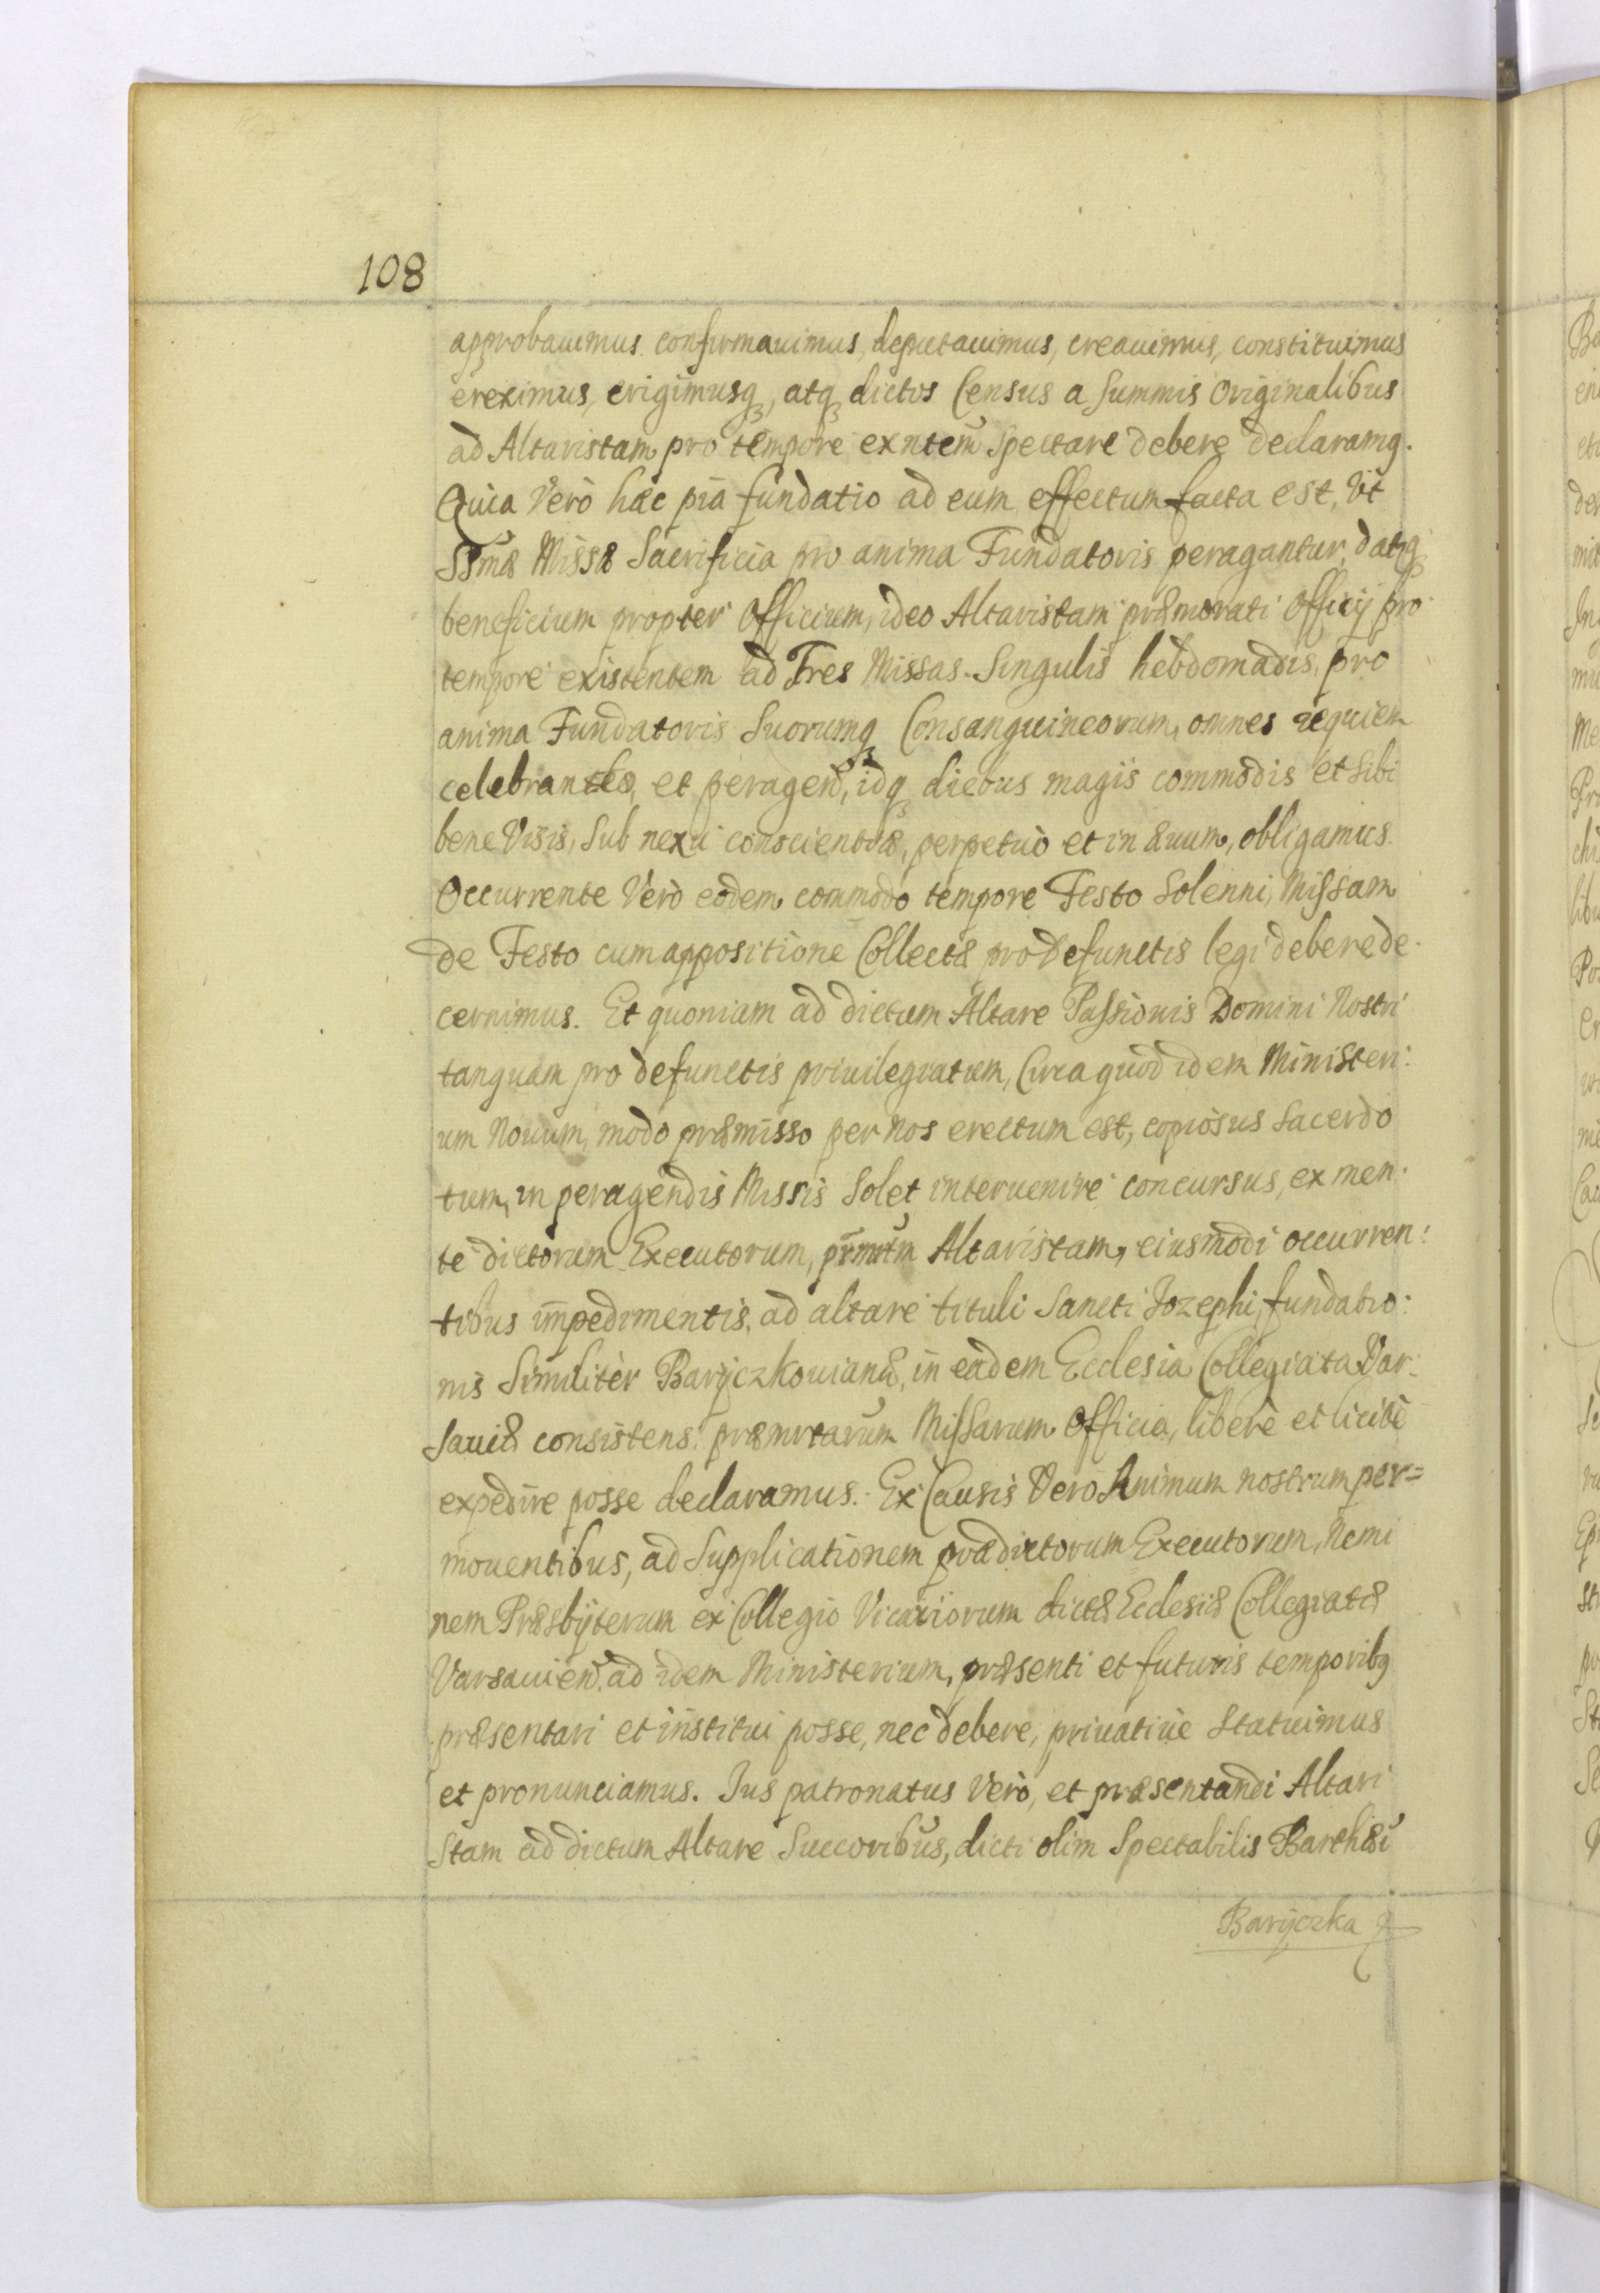 108
approbauimus confirmauimus, deputauimus, creauimus, constituimus
ereximus, erigimusq, atq dictos Census a Summis Originalibus
ad Altaristam pro tempore exntem Spectare debere declaramq.
Quia Verò hæc pia fundatio ad eum effectum facta est, Vt
SSmæ Missæ Sacrificia pro anima Fundatoris peragantur, datq
beneficium propter Officium, ideo Altaristam præmorati Officij pro
tempore existentem ad Tres Missas Singulis hebdomadis, pro
anima Fundatoris Suorumq Consanguineorum, omnes requiem
celebrandas, et peragend, idq diebus magis commodis et Sibi
bene Visis, Sub nexu conscientiæ, perpetuò et in æuum, obligamus.
Occurrente Verò eodem commodo tempore Festo Solenni, Missam
de Festo cum appositione Collectæ pro Defunctis legi debere de
cernimus. Et quoniam ad dictum Altare Passionis Domini Nostri
tanquam pro defunctis priuilegiatum, Circa quod idem Ministeri:
um Nouum, modo præmisso per nos erectum est, copiosus Sacerdo
tum, in peragendis Missis Solet interuenire concursus, ex men:
te dictorum Executorum, Altaristam, eiusmodi occurren:
tibus impedimentis, ad altare tituli Sancti Jozephi, fundatio:
nis Similiter Baryczkouianæ, in eadem Ecclesia Collegiata Var:
Sauiæ consistens: præmrtarum Missarum Officia, liberè et licitè
expedire posse declaramus. Ex Causis Vero Animum nostrum per=
mouentibus, ad Supplicationem prædictorum Executorum, Nemi
nem Præsbyterum ex Collegio Vicariorum dictæ Ecclesiæ Collegiatæ
Varsauien. ad idem Ministerium, præsenti et futuris temporibq
præsentari et institui posse, nec debere, priuatiue Statuimus
et pronunciamus. Jus patronatus Verò, et præsentandi Altari
Stam ad dictum Altare Succoribus, dicti olim Spectabilis Barthæi
Baryczka